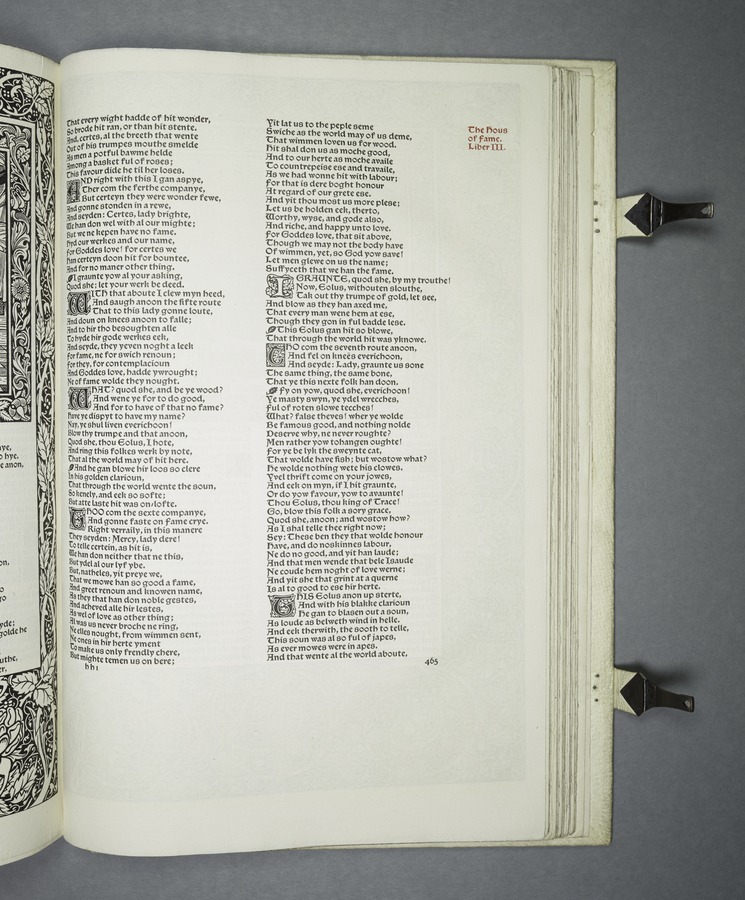 ye,
o hye.
e anon,
on.
o
go
yde;
golde he
uthe,
er.
That every wight hadde of hit wonder,
So brode hit ran, or than hit stente.
And, certes, al the breeth that wente
Out of his trumpes mouthe smelde
As men a potful bawme helde
Among a basket ful of roses;
This favour dide he til her loses.
AND right with this I gan aspye,
Ther com the ferthe companye,
But certeyn they were wonder fewe,
And gonne stonden in a rewe,
And seyden: Certes, lady brighte,
We han don wel with al our mighte;
But we ne kepen have no fame.
Hyd our werkes and our name,
For Goddes love! for certes we
Han certeyn doon hit for bountee,
And for no maner other thing.
I graunte yow al your asking,
Quod she; let your werk be deed.
WITH that aboute I clew myn heed,
And saugh anoon the fifte route
That to this lady gonne loute,
And doun on knees anoon to falle;
And to hir tho besoughten alle
To hyde hir gode werkes eek,
And seyde, they yeven noght a leek
For fame, ne for swich renoun;
For they, for contemplacioun
And Goddes love, hadde ywrought;
Ne of fame wolde they nought.
WHAT? quod she, and be ye wood?
And wene ye for to do good,
And for to have of that no fame?
Have ye dispyt to have my name?
Nay, ye shul liven everichoon!
Blow thy trumpe and that anoon,
Quod she, thou Eolus, I hote,
And ring this folkes werk by note,
That al the world may of hit here.
And he gan blowe hir loos so clere
In his golden clarioun,
That through the world wente the soun,
So kenely, and eek so softe;
But atte laste hit was on-lofte.
THOO com the sexte companye,
And gonne faste on Fame crye.
Right verraily, in this manere
They seyden: Mercy, lady dere!
To telle certein, as hit is,
We han don neither that ne this,
But ydel al our lyf ybe.
But, natheles, yit preye we,
That we mowe han so good a fame,
And greet renoun and knowen name,
As they that han don noble gestes,
And acheved alle hir lestes,
As wel of love as other thing;
Al was us never broche ne ring,
Ne elles nought, from wimmen sent,
Ne ones in hir herte yment
To make us only frendly chere,
But mighte temen us on bere;
hh1
Yit lat us to the peple seme
Swiche as the world may of us deme,
That wimmen loven us for wood.
Hit shal don us as moche good,
And to our herte as moche availe
To countrepeise ese and travaile,
As we had wonne hit with labour;
For that is dere boght honour
At regard of our grete ese.
And yit thou most us more plese;
Let us be holden eek, therto,
Worthy, wyse, and gode also,
And riche, and happy unto love.
For Goddes love, that sit above,
Though we may not the body have
Of wimmen, yet, so God yow save!
Let men glewe on us the name;
Suffyceth that we han the fame.
I GRAUNTE, quod she, by my trouthe!
Now, Eolus, withouten slouthe,
Tak out thy trumpe of gold, let see,
And blow as they han axed me,
That every man wene hem at ese,
Though they gon in ful badde lese.
This Eolus gan hit so blowe,
That through the world hit was yknowe.
THO com the seventh route anoon,
And fel on kneës everichoon,
And seyde: Lady, graunte us sone
The same thing, the same bone,
That ye this nexte folk han doon.
Fy on yow, quod she, everichoon!
Ye masty swyn, ye ydel wrecches,
Ful of roten slowe tecches!
What? false theves! wher ye wolde
Be famous good, and nothing nolde
Deserve why, ne never roughte?
Men rather yow tohangen oughte!
For ye be lyk the sweynte cat,
That wolde have fish; but wostow what?
He wolde nothing wete his clowes.
Yvel thrift come on your jowes,
And eek on myn, if I hit graunte,
Or do yow favour, yow to avaunte!
Thou Eolus, thou king of Trace!
Go, blow this folk a sory grace,
Quod she, anoon; and wostow how?
As I shal telle thee right now;
Sey: These ben they that wolde honour
Have, and do noskinnes labour,
Ne do no good, and yit han laude;
And that men wende that bele Isaude
Ne coude hem noght of love werne;
And yit she that grint at a querne
Is al to good to ese hir herte.
THIS Eolus anon up sterte,
And with his blakke clarioun
He gan to blasen out a soun,
As loude as belweth wind in helle.
And eek therwith, the sooth to telle,
This soun was al so ful of japes,
As ever mowes were in apes.
And that wente al the world aboute,
465
The Hous
of Fame.
Liber III.